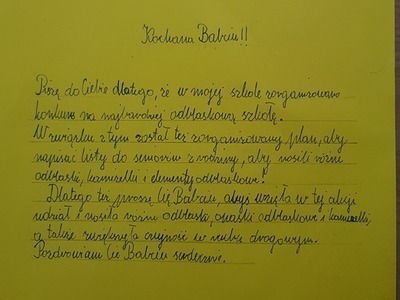 Kochana Babciu!!
Piszę do Ciebie dlatego, że w mojej szkole zorganizowano
konkurs na najbardziej odblaskową szkołę.
W związku z tym został też zorganizowany plan, aby
napisać listy do seniorów z rodziny, aby nosili różne
odblaski, kamizelki i elementy odblaskowe!
Dlatego też proszę Cię Babciu, abyś wzięła w tej akcji
udział i nosiła różne odblaski, opaski odblaskowe i kamizelki,
a także zwiększyła czujność w ruchu drogowym.
Pozdrawiam Cię Babciu serdecznie.